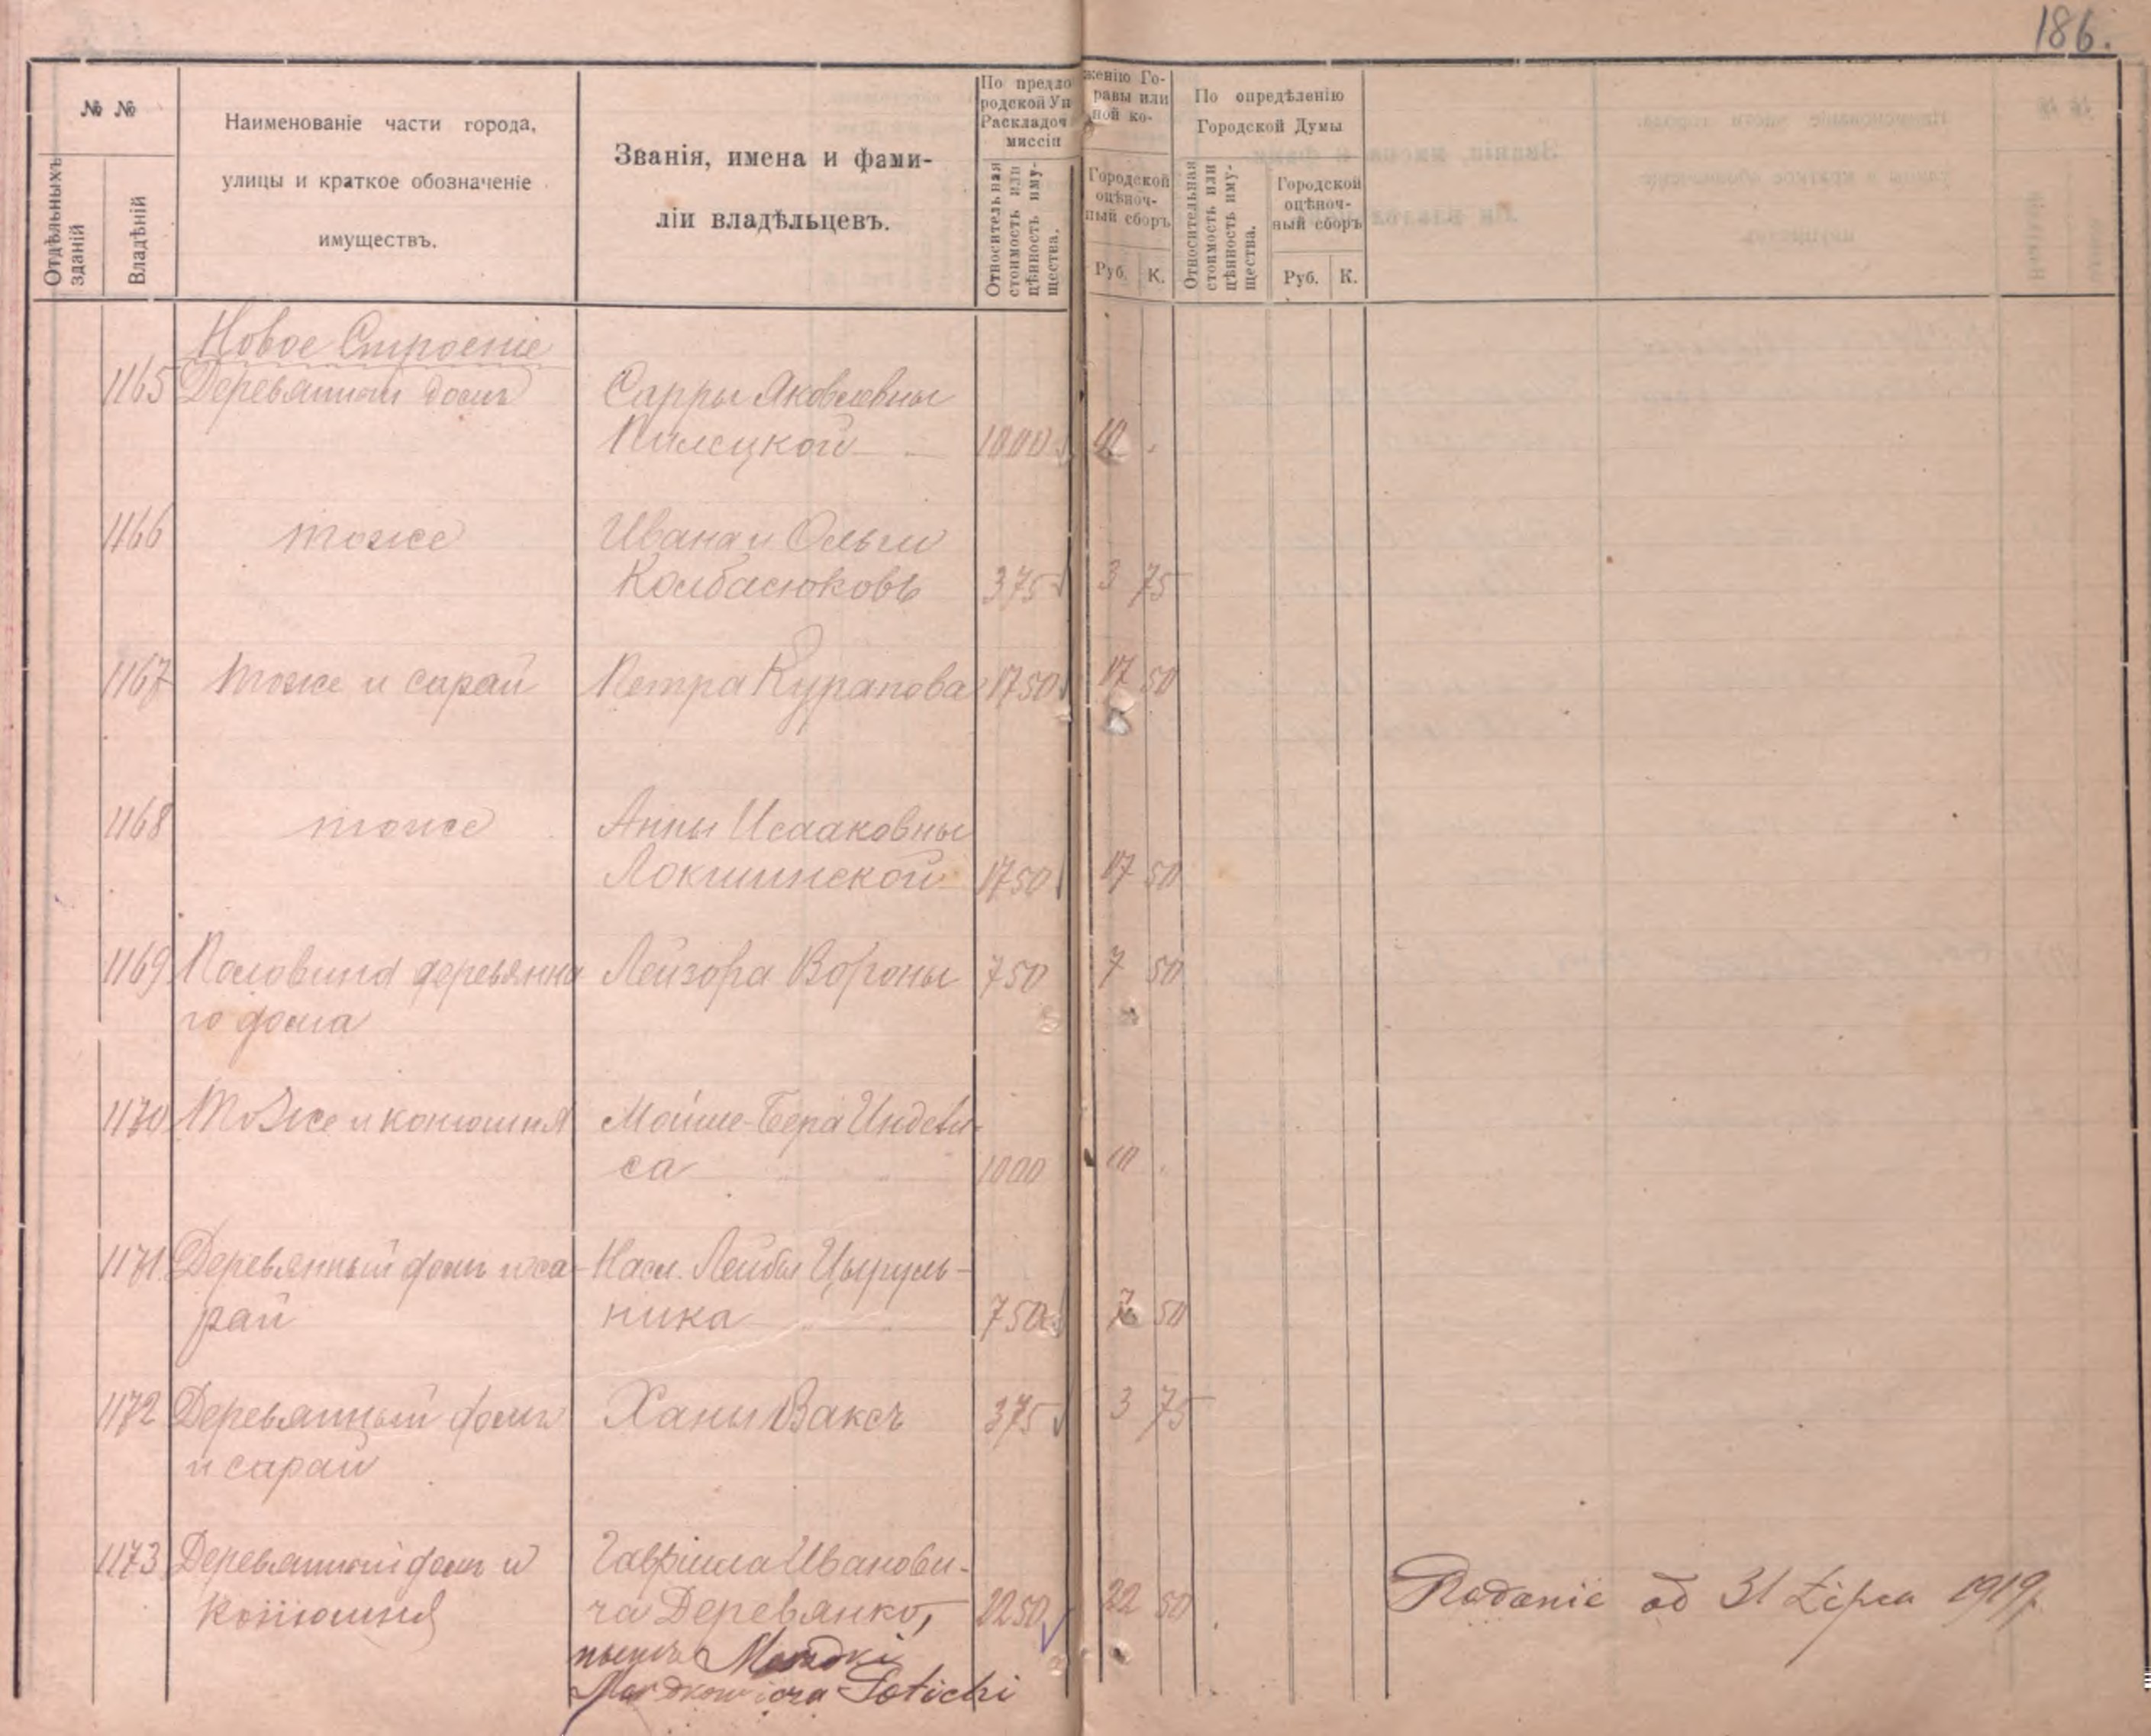 186.
№ №
Отдѣльныхъ зданій
Владѣній
Наименованіе части города,
улицы и краткое обозначеніе
имуществъ.
Званія, имена и фами-
ліи владѣльцевъ.
По предло
родской Уп
Раскладоч
миссіи
женію Го-
равы или
ной ко-
Относительная
стоимость или
цѣнность иму-
щества.
Городской
оцѣноч-
ный сборъ
Руб. К.
По опредѣленію
Городской Думы
Относительная
стоимость или
цѣнность иму-
щества.
Городской
оцѣноч-
ный сборъ
Руб. К.
Новое Строеніе
1165 Деревянный домъ Сарры Яковлевны
Пилецкой 1000 10 .
1166 тоже Ивана и Ольги
Колбасюковъ 375 3 75
1167 тоже и сарай Петра Курапова 1750 17 50
1168 тоже Анны Исааковны
Локшинской 1750 17 50
1169 Половина деревянна Лейзора Вороны 750 7 50
го дома
1170 Тоже и конюшня Мойше-Бера
са 1000 10 .
1171 Деревянный домъ и са- Насл. Лейбы Цыруль-
рай ника 750 7 50
1172 Деревянный домъ Ханы Ваксъ 375 3 75
и сарай
1173 Деревянный домъ и Гавріила Иванови-
конюшня ча Деревянко, 2250 22 50
Podanie od 31 Lipca 1919 r.
нынѣ
Mordkowicza